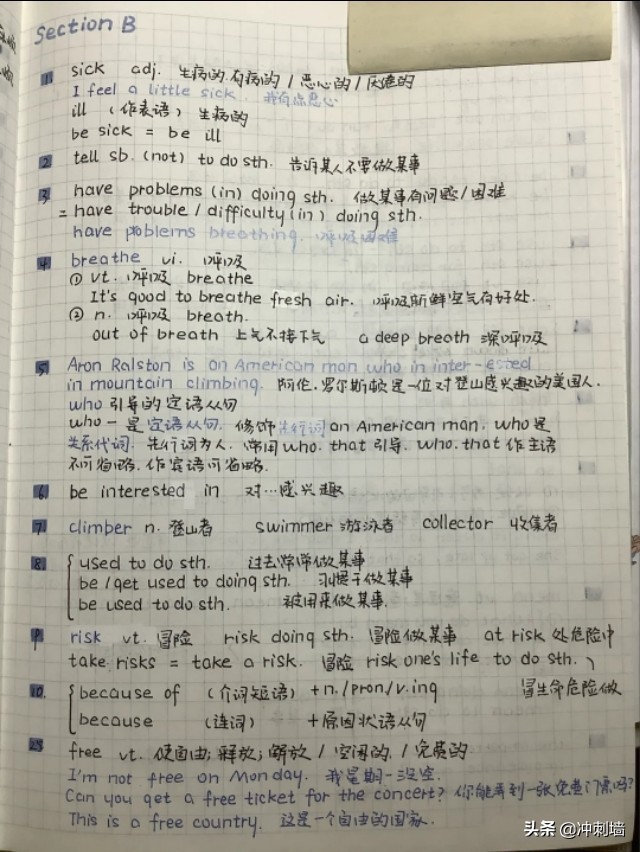 Section B
1 sick adj. 生病的.有病的 / 恶心的 / 厌倦的
I feel a little sick. 我有点恶心
ill （作表语）生病的
be sick = be ill
2 tell sb. (not) to do sth. 告诉某人不要做某事
3 have problems (in) doing sth. 做某事有问题/困难
= have trouble / difficulty (in) doing sth.
have problems breathing. 呼吸困难
4 breathe vi. 呼吸
① vt. 呼吸 breathe
It's good to breathe fresh air. 呼吸新鲜空气有好处.
② n. 呼吸 breath.
out of breath 上气不接下气 a deep breath 深呼吸
5 Aron Ralston is an American man who in inter-ested
in mountain climbing. 阿伦.罗尔斯顿是一位对登山感兴趣的美国人.
who 引导的定语从句
who - 是定语从句. 修饰先行词 an American man. who 是
关系代词. 先行词为人. 常用 who. that 引导. who. that 作主语
不可省略. 作宾语可省略.
6 be interested in 对…感兴趣
7 climber n. 登山者 swimmer 游泳者 collector 收集者
8 used to do sth. 过去常常做某事
be / get used to doing sth. 习惯于做某事
be used to do sth. 被用来做某事.
9 risk vt. 冒险 risk doing sth. 冒险做某事 at risk 处危险中
take risks = take a risk. 冒险 risk one's life to do sth.
10. because of （介词短语）+n./pron/v.ing 冒生命危险做
because （连词） +原因状语从句
free vt. 使自由; 释放; 解放 / 空闲的. / 免费的
I'm not free on Monday. 我星期一没空.
Can you get a free ticket for the concert? 你能弄到一张免费门票吗?
This is a free country. 这是一个自由的国家.
头条 @冲刺墙